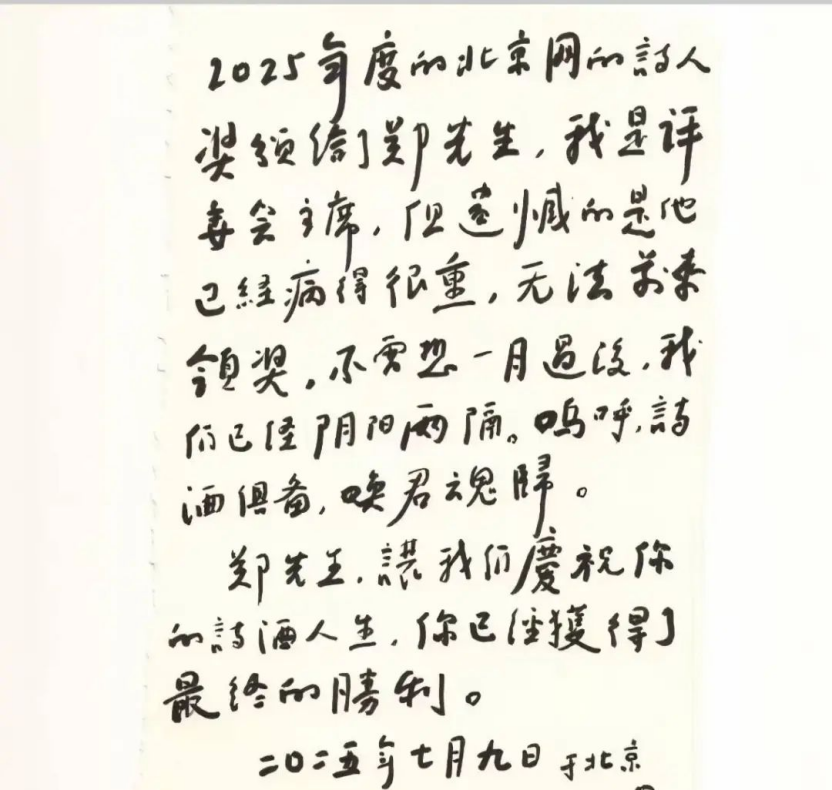 2025年度的北京网的詩人
奖颁给了郑先生，我是评
委会主席，但遗憾的是他
已經病得很重，无法前来
領奖。不曾想一月過後，我
们已径阴阳两隔。嗚呼，詩
酒俱备，唤君魂歸。
郑先生，讓我们慶祝你
的詩酒人生，你已径獲得了
最终的勝利。
二〇二五年七月九日 于北京